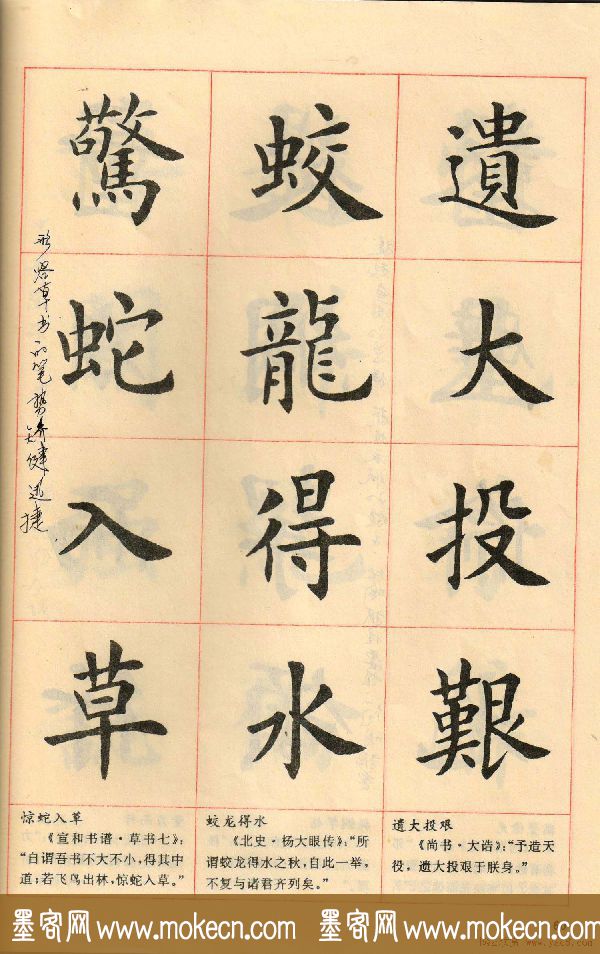 遺大投艱
蛟龍得水
驚蛇入草
形容草书的笔势矫健迅捷
遗大投艰
《尚书·大诰》：“予造天
役，遗大投艰于朕身。”
蛟龙得水
《北史·杨大眼传》：“所
谓蛟龙得水之秋，自此一举，
不复与诸君齐列矣。”
惊蛇入草
《宣和书谱·草书七》：
“自谓吾书不大不小，得其中
道；若飞鸟出林，惊蛇入草。”
墨客网 www.mokecn.com 墨客网 www.mokecn.com